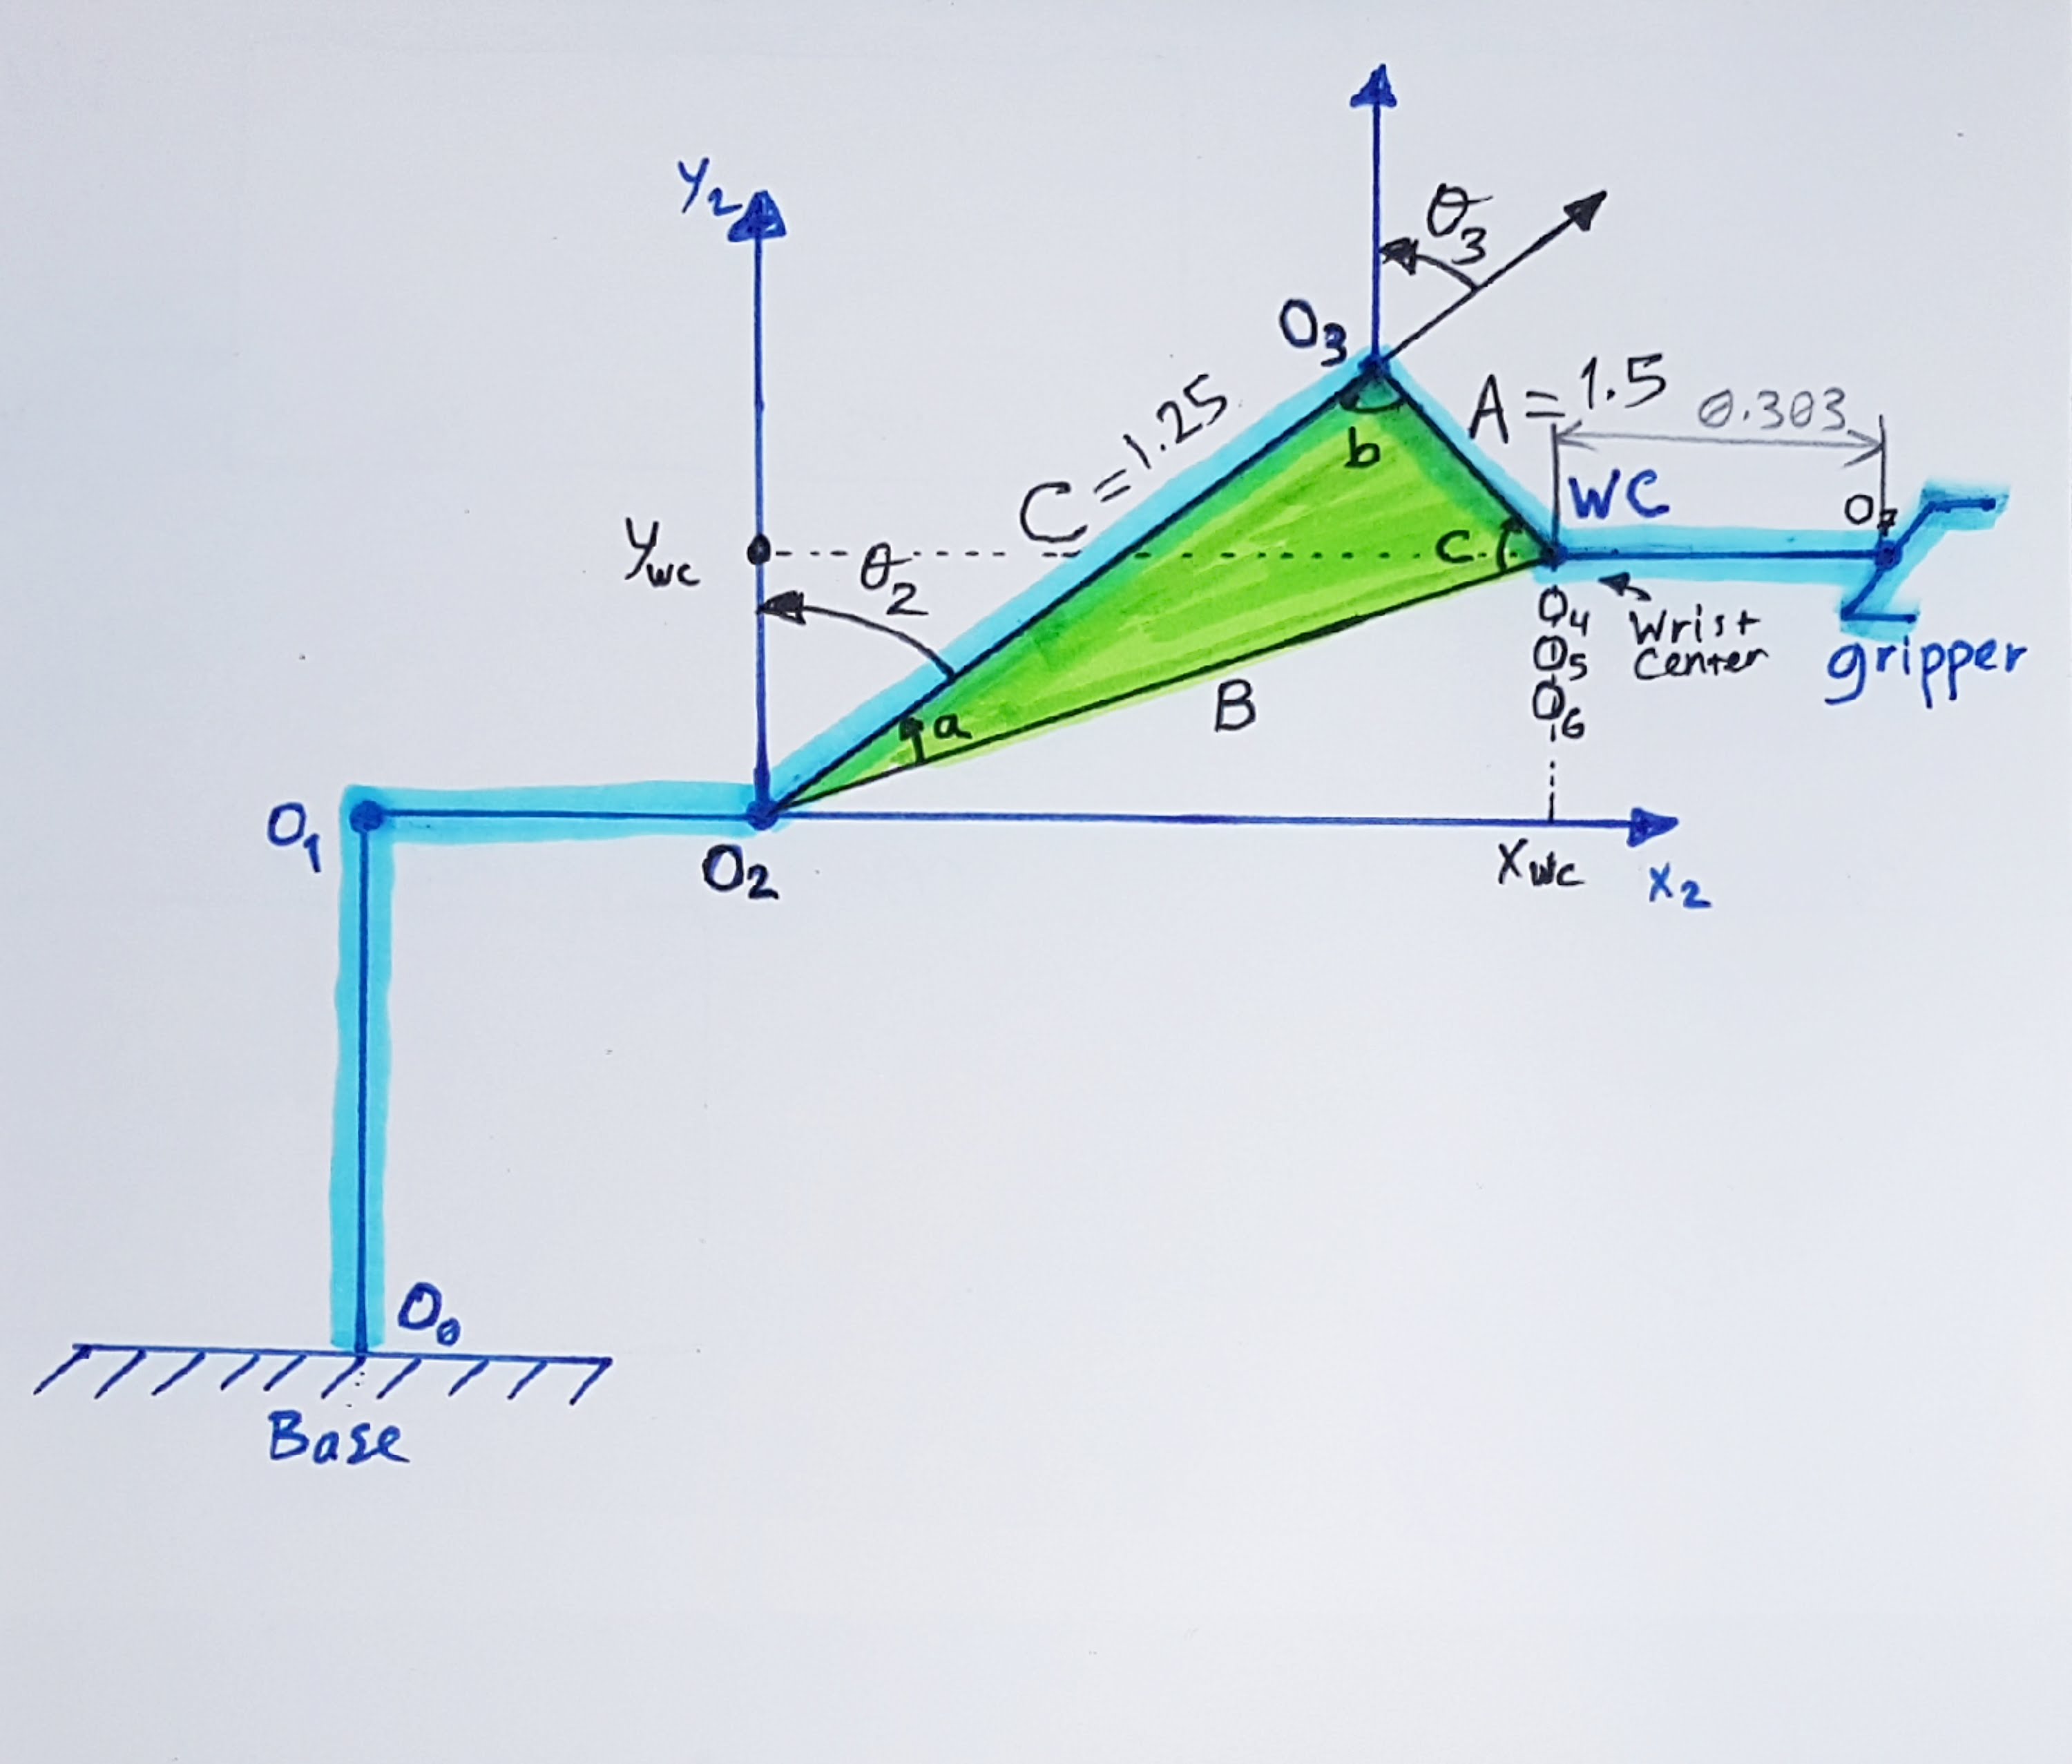 y₂
θ₃
O₃
C = 1.25
A = 1.5
0.303
b
WC
O₇
y_wc
θ₂
c
O₄
O₅
O₆
Wrist
Center
gripper
a
B
O₁
O₂
x_wc
x₂
O₀
Base